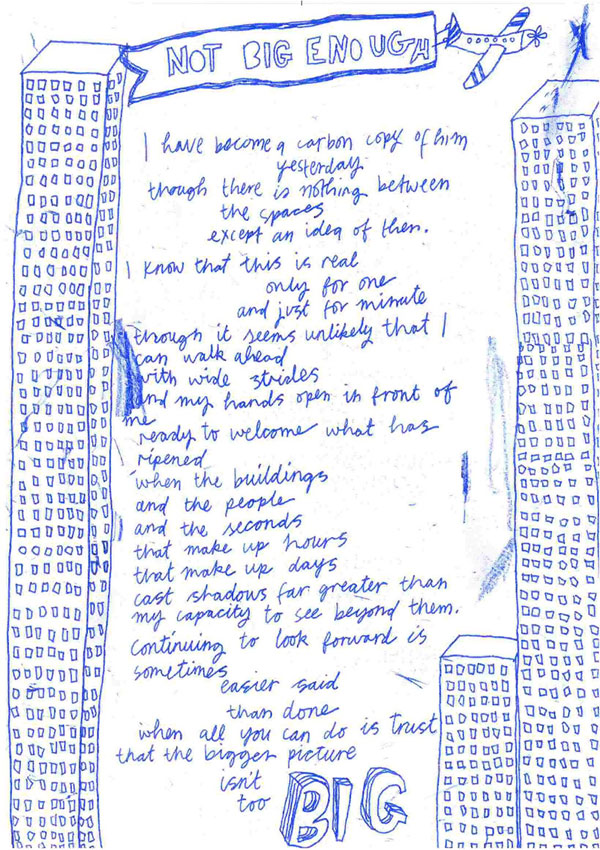 NOT BIG ENOUGH
I have become a carbon copy of him
yesterday
though there is nothing between
the spaces
except an idea of them.
I know that this is real
only for one
and just for minute
though it seems unlikely that I
can walk ahead
with wide strides
and my hands open in front of
me
ready to welcome what has
ripened
when the buildings
and the people
and the seconds
that make up hours
that make up days
cast shadows far greater than
my capacity to see beyond them.
Continuing to look forward is
sometimes
easier said
than done
when all you can do is trust
that the bigger picture
isn't
too BIG